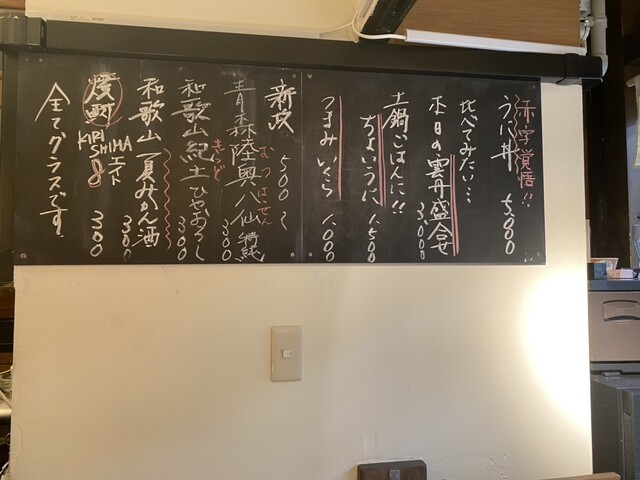 赤字覚悟!!
うに丼 5,000
比べてみたい…
本日の雲丹盛合せ 3,000
土鍋ごはんに!!
ちょいうに 1,500
つまみいくら 1,000
新政 500〜
むつはっせん
青森陸奥八仙 300
きっど
和歌山紀土ひやおろし 300
和歌山夏みかん酒 300
KIRISHIMA エイト 8 300
全てグラスです。